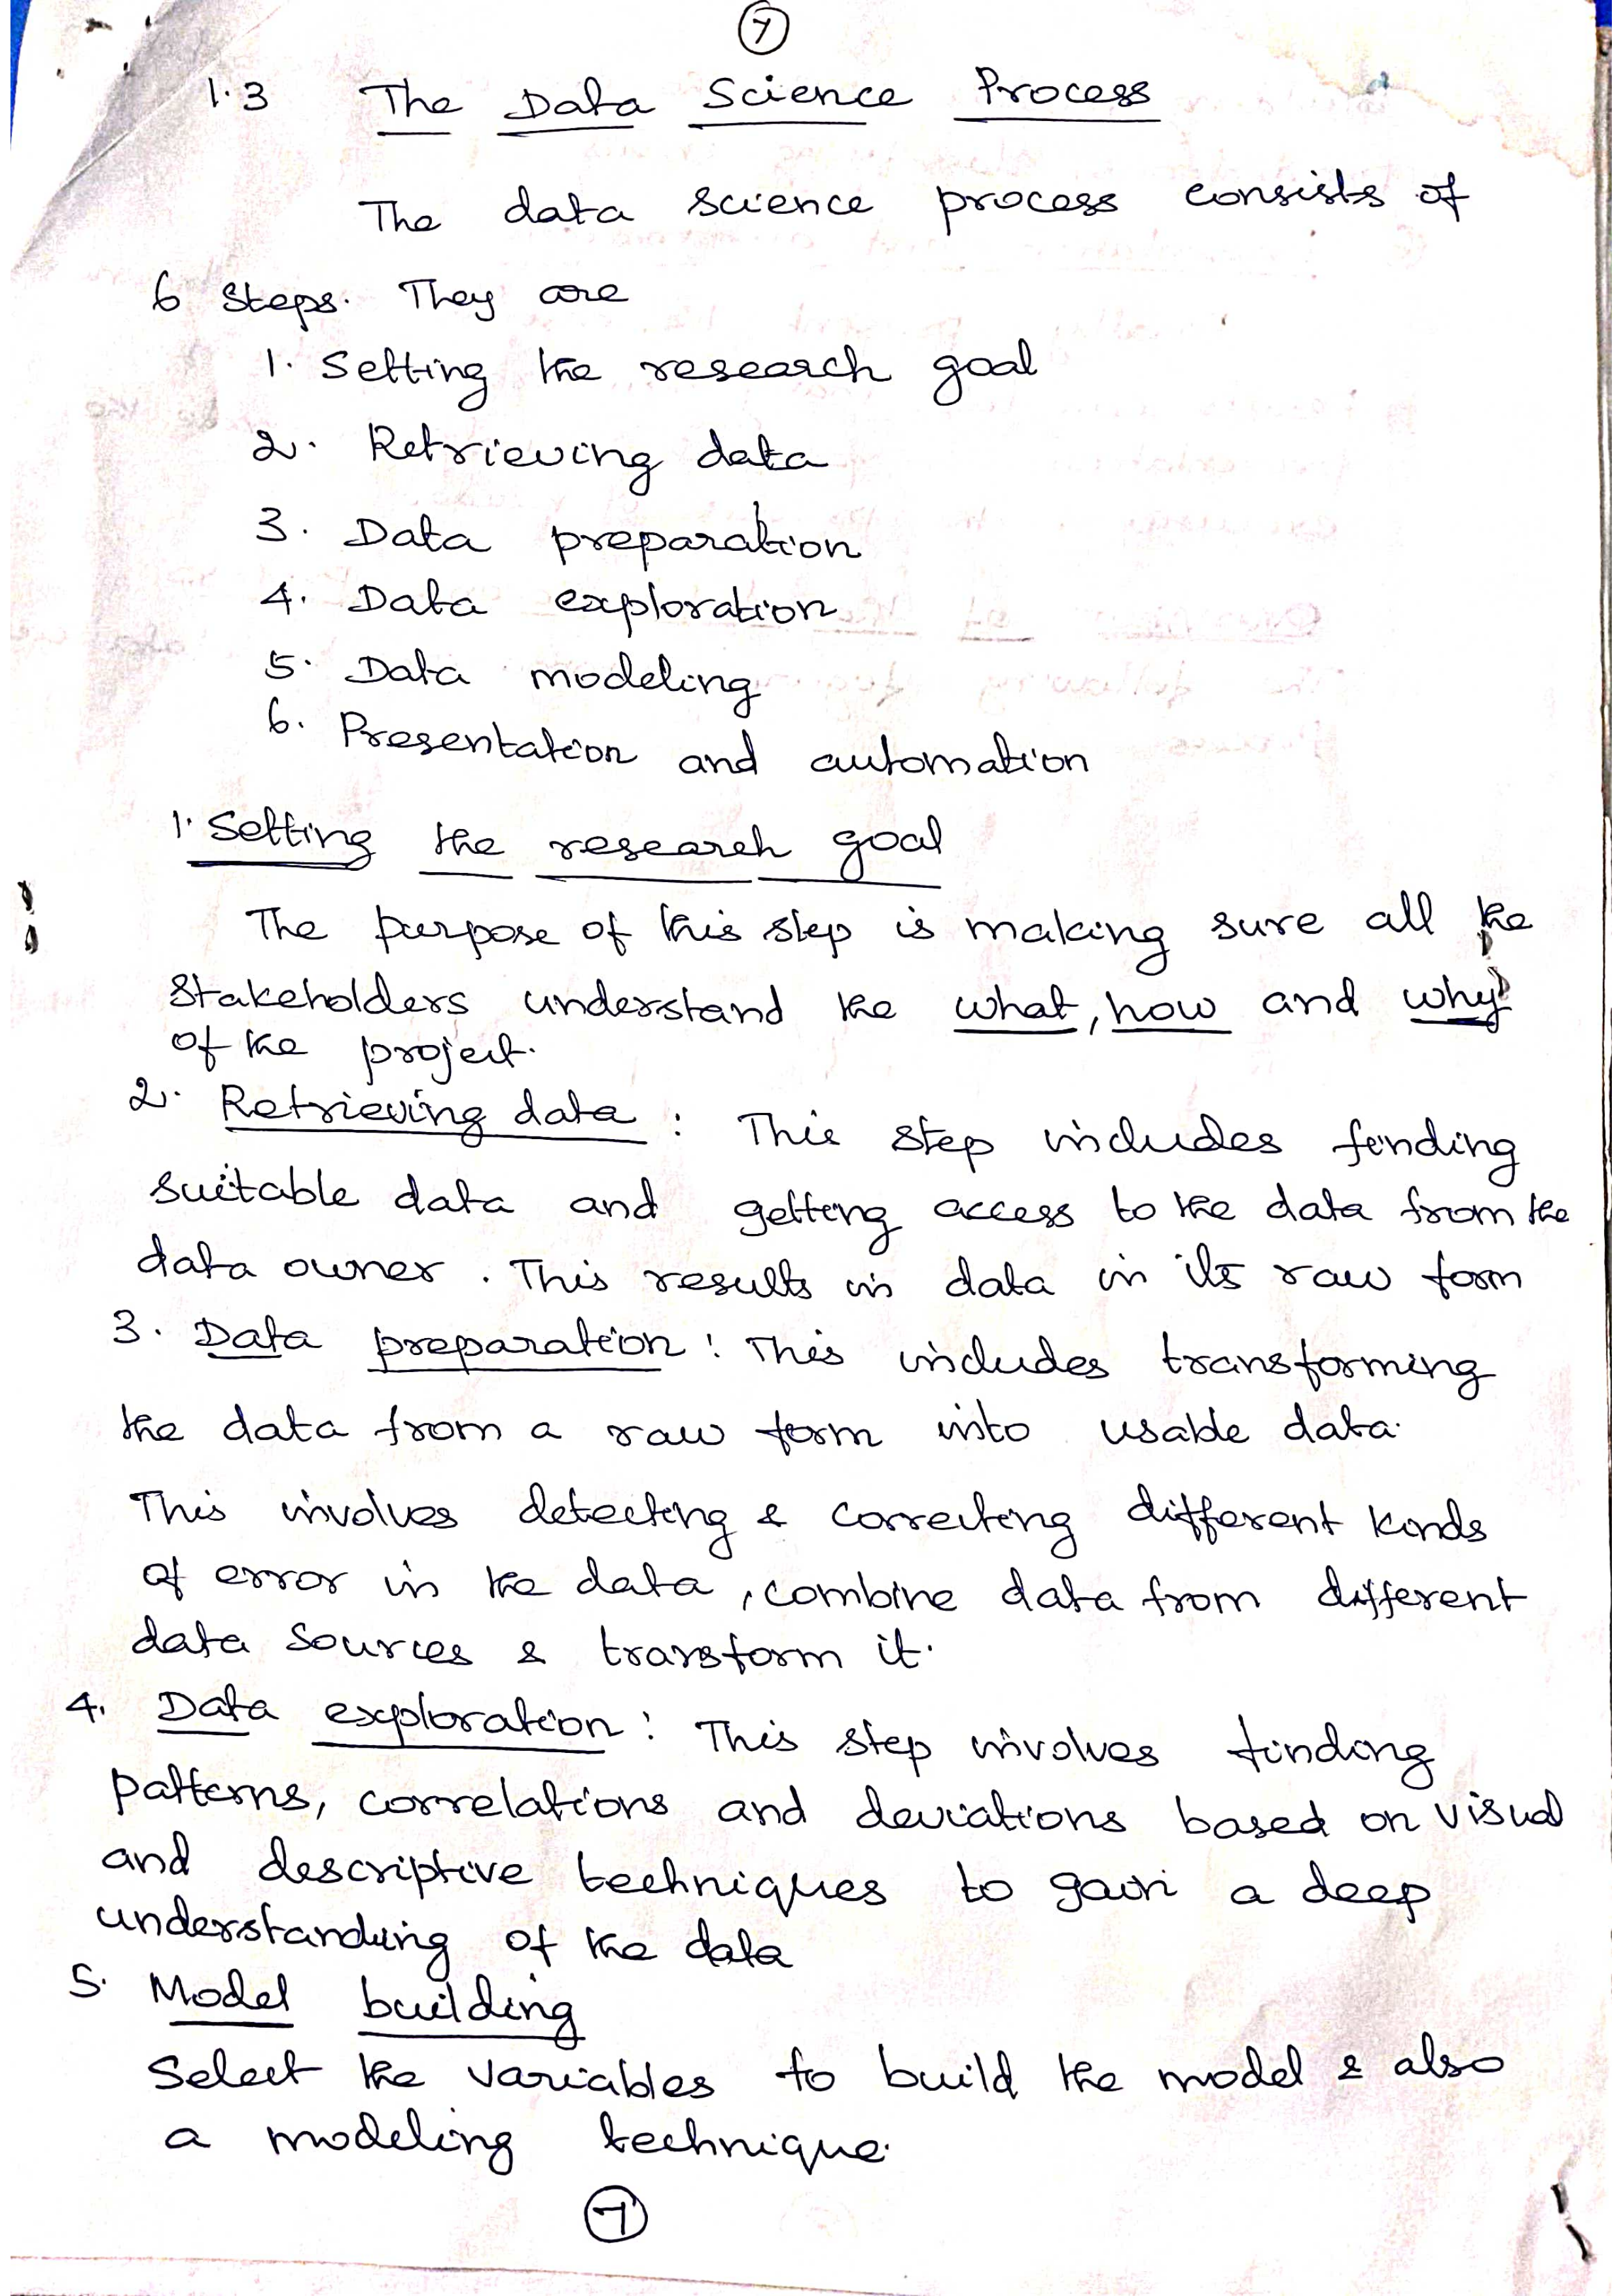 7
1.3 The Data Science Process
The data science process consists of
6 Steps. They are
1. Setting the research goal
2. Retrieving data
3. Data preparation
4. Data exploration
5. Data modeling
6. Presentation and automation
1. Setting the research goal
The purpose of this step is making sure all the
Stakeholders understand the what, how and why
of the project.
2. Retrieving data : This step includes finding
suitable data and getting access to the data from the
data owner. This results in data in its raw form
3. Data preparation : This includes transforming
the data from a raw form into usable data.
This involves detecting & correcting different kinds
of error in the data, combine data from different
data sources & transform it.
4. Data exploration : This step involves finding
patterns, correlations and deviations based on visual
and descriptive techniques to gain a deep
understanding of the data
5. Model building
Select the variables to build the model & also
a modeling technique.
7